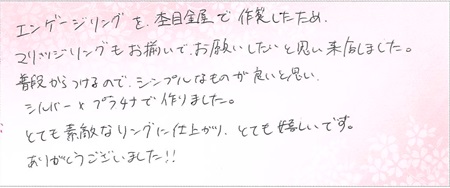 エンゲージリングを、杢目金屋で作製したため、
マリッジリングもお揃いで、お願いしたいと思い来店しました。
普段からつけるので、シンプルなものが良いと思い、
シルバー×プラチナで作りました。
とても素敵なリングに仕上がり、とても嬉しいです。
ありがとうございました!!